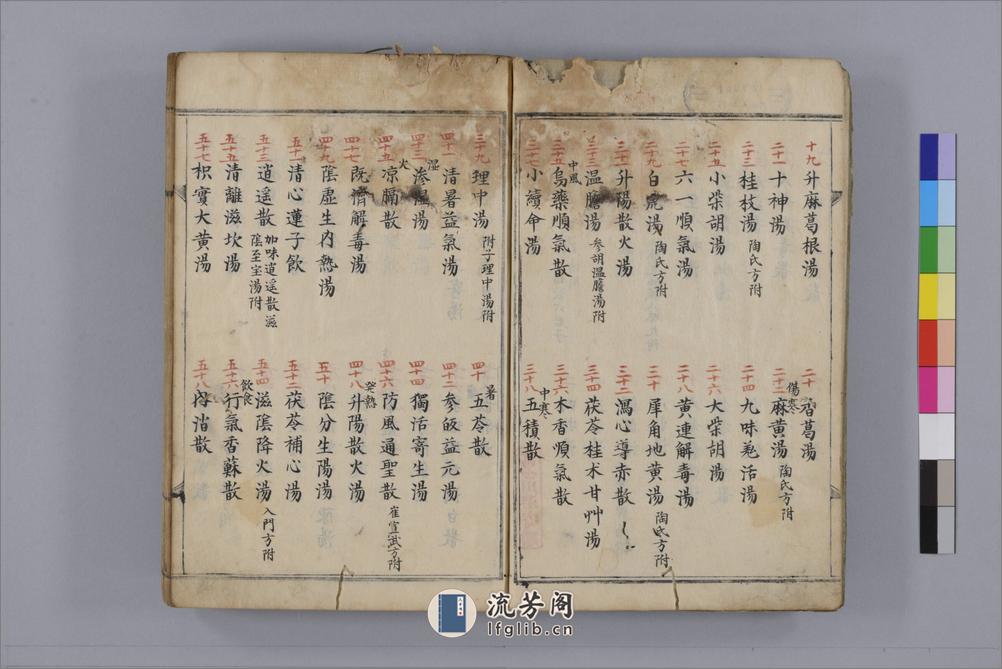 十九 升麻葛根湯
二十 沓葛湯
二十一 十神湯
傷寒
二十二 麻黄湯 陶氏方附
二十三 桂枝湯 陶氏方附
二十四 九味羌活湯
二十五 小柴胡湯
二十六 大柴胡湯
二十七 六一順氣湯
二十八 黄連解毒湯
二十九 白虎湯 陶氏方附
三十 犀角地黄湯 陶氏方附
三十一 升陽散火湯
三十二 瀉心導赤散
三十三 温膽湯 參胡温膽湯附
三十四 茯苓桂朮甘艸湯
中風
三十五 烏藥順氣散
三十六 木香順氣散
三十七 小續命湯
中寒
三十八 五積散
三十九 理中湯 附子理中湯附
暑
四十 五苓散
四十一 清暑益氣湯
四十二 參歧益元湯
湿
四十三 滲湿湯
四十四 獨活寄生湯
火
四十五 凉膈散
四十六 防風通聖散 崔宣武方附
四十七 既濟解毒湯
癸熱
四十八 升陽散火湯
四十九 陰虛生内熱湯
五十 陰分生陽湯
五十一 清心蓮子飲
五十二 茯苓補心湯
五十三 逍遥散 加味逍遥散滋陰至宝湯附
五十四 滋陰降火湯 入門方附
五十五 清離滋坎湯
飲食
五十六 行氣香蘇散
五十七 枳實大黄湯
五十八 內消散
流芳阁
lfglib.cn